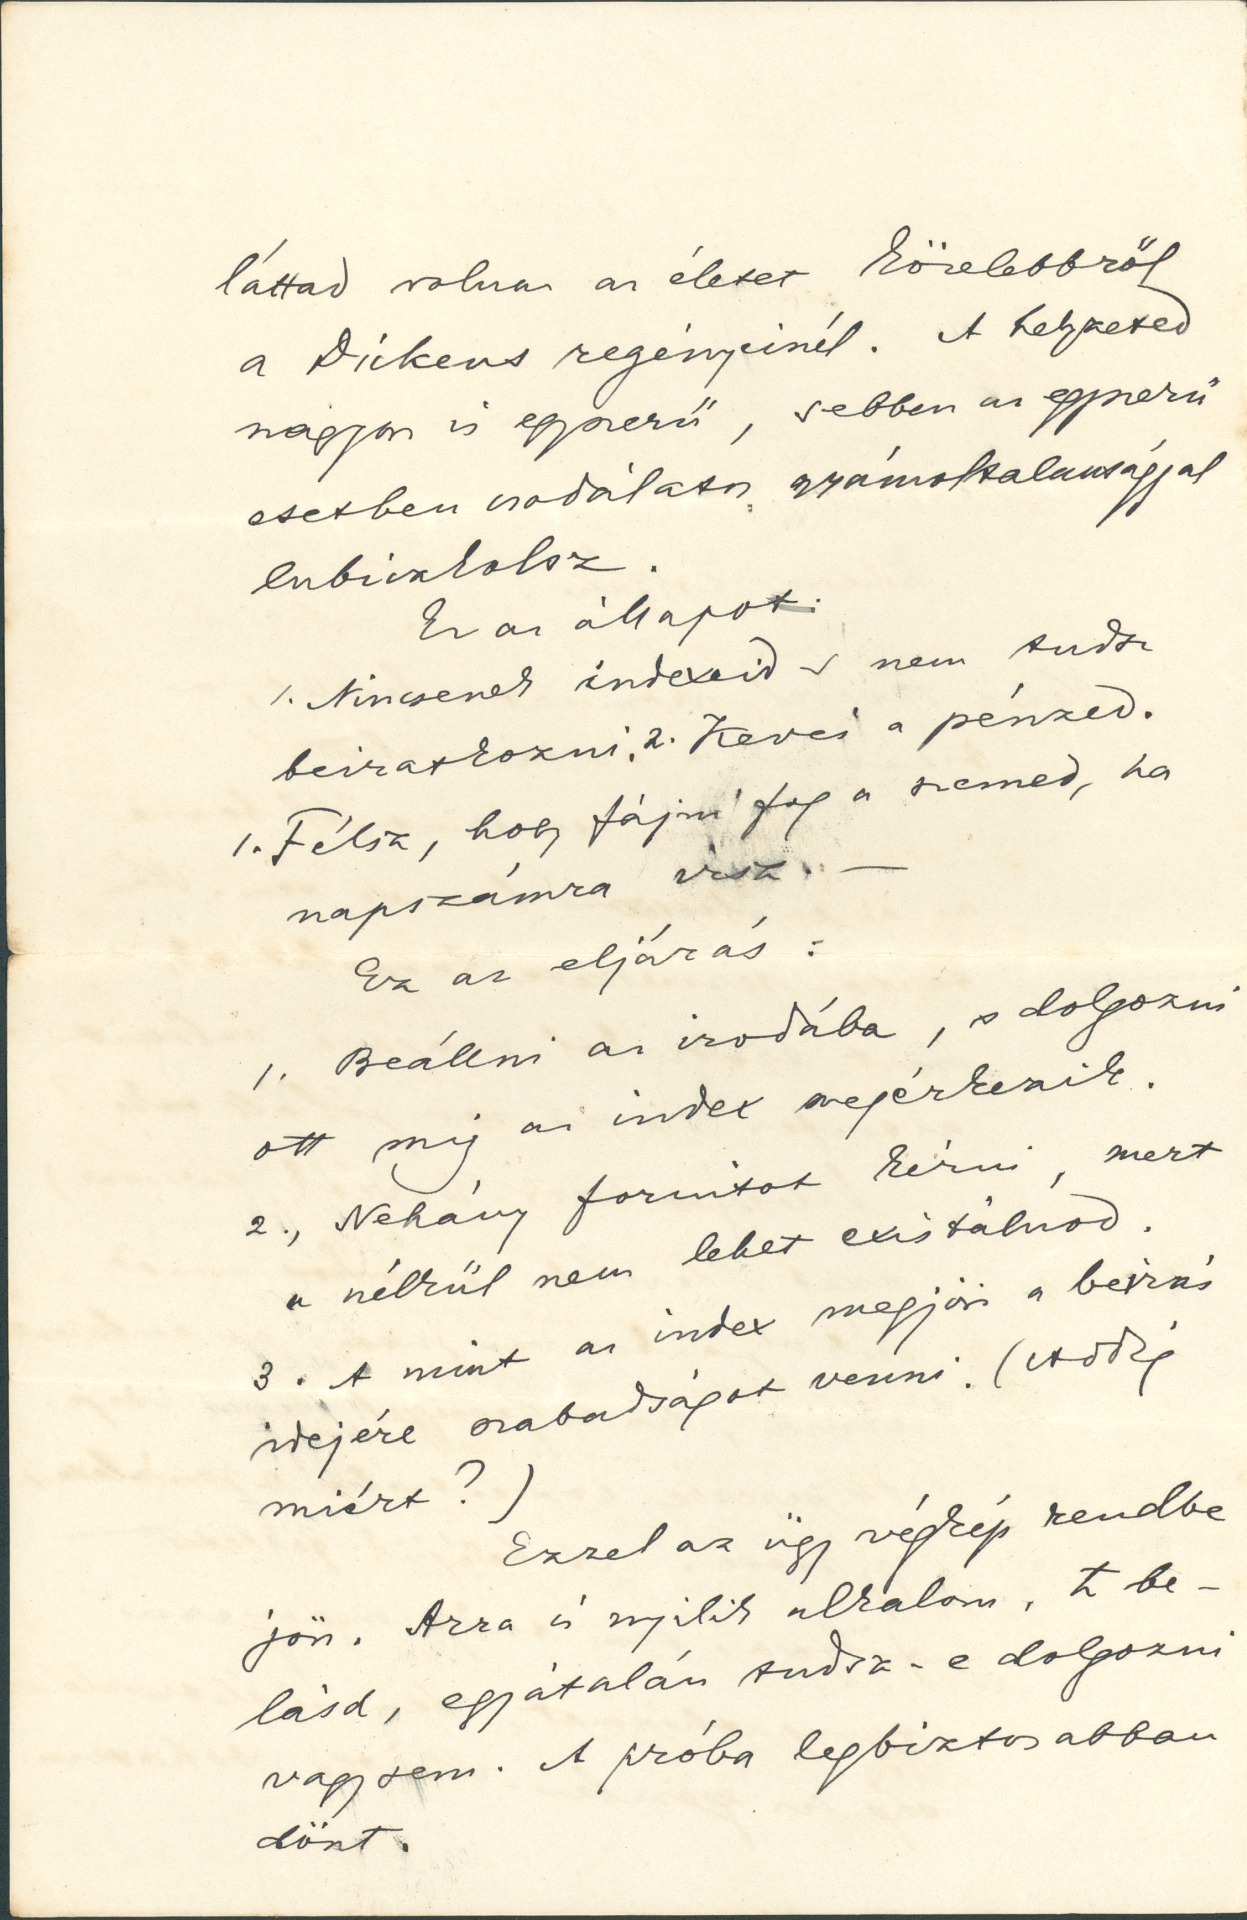 láttad volna az életet közelebbről
a Dickens regényeinél. A helyzeted
nagyon is egyszerű, s ebben az egyszerű
esetben csodálatos számoltalansággal
lubiczkolsz.
Ez az állapot:
1. Nincsenek indexeid s nem tudsz
beiratkozni. 2. Kevés a pénzed.
1. Félsz, hogy fájni fog a szemed, ha
napszámra írsz. —
Ez az eljárás:
1. Beállni az irodába, s dolgozni
ott míg az index megérkezik.
2., Nehány forintot kérni, mert
a nélkül nem lehet existálnod.
3. A mint az index megjön a beirás
idejére szabadságot venni. (Addig
miért?)
Ezzel az ügy végkép rendbe
jön. Arra is nyilik alkalom, h be-
lásd, egyátalán tudsz-e dolgozni
vagy sem. A próba legbiztosabban
dönt.